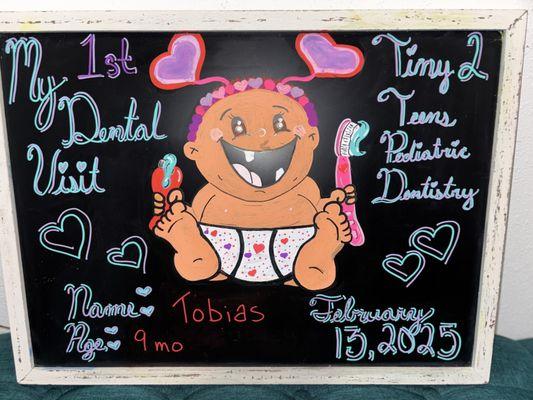 My 1st
Dental
Visit
Tiny 2
Teens
Pediatric
Dentistry
Name: Tobias
Age: 9 mo
February
13, 2025